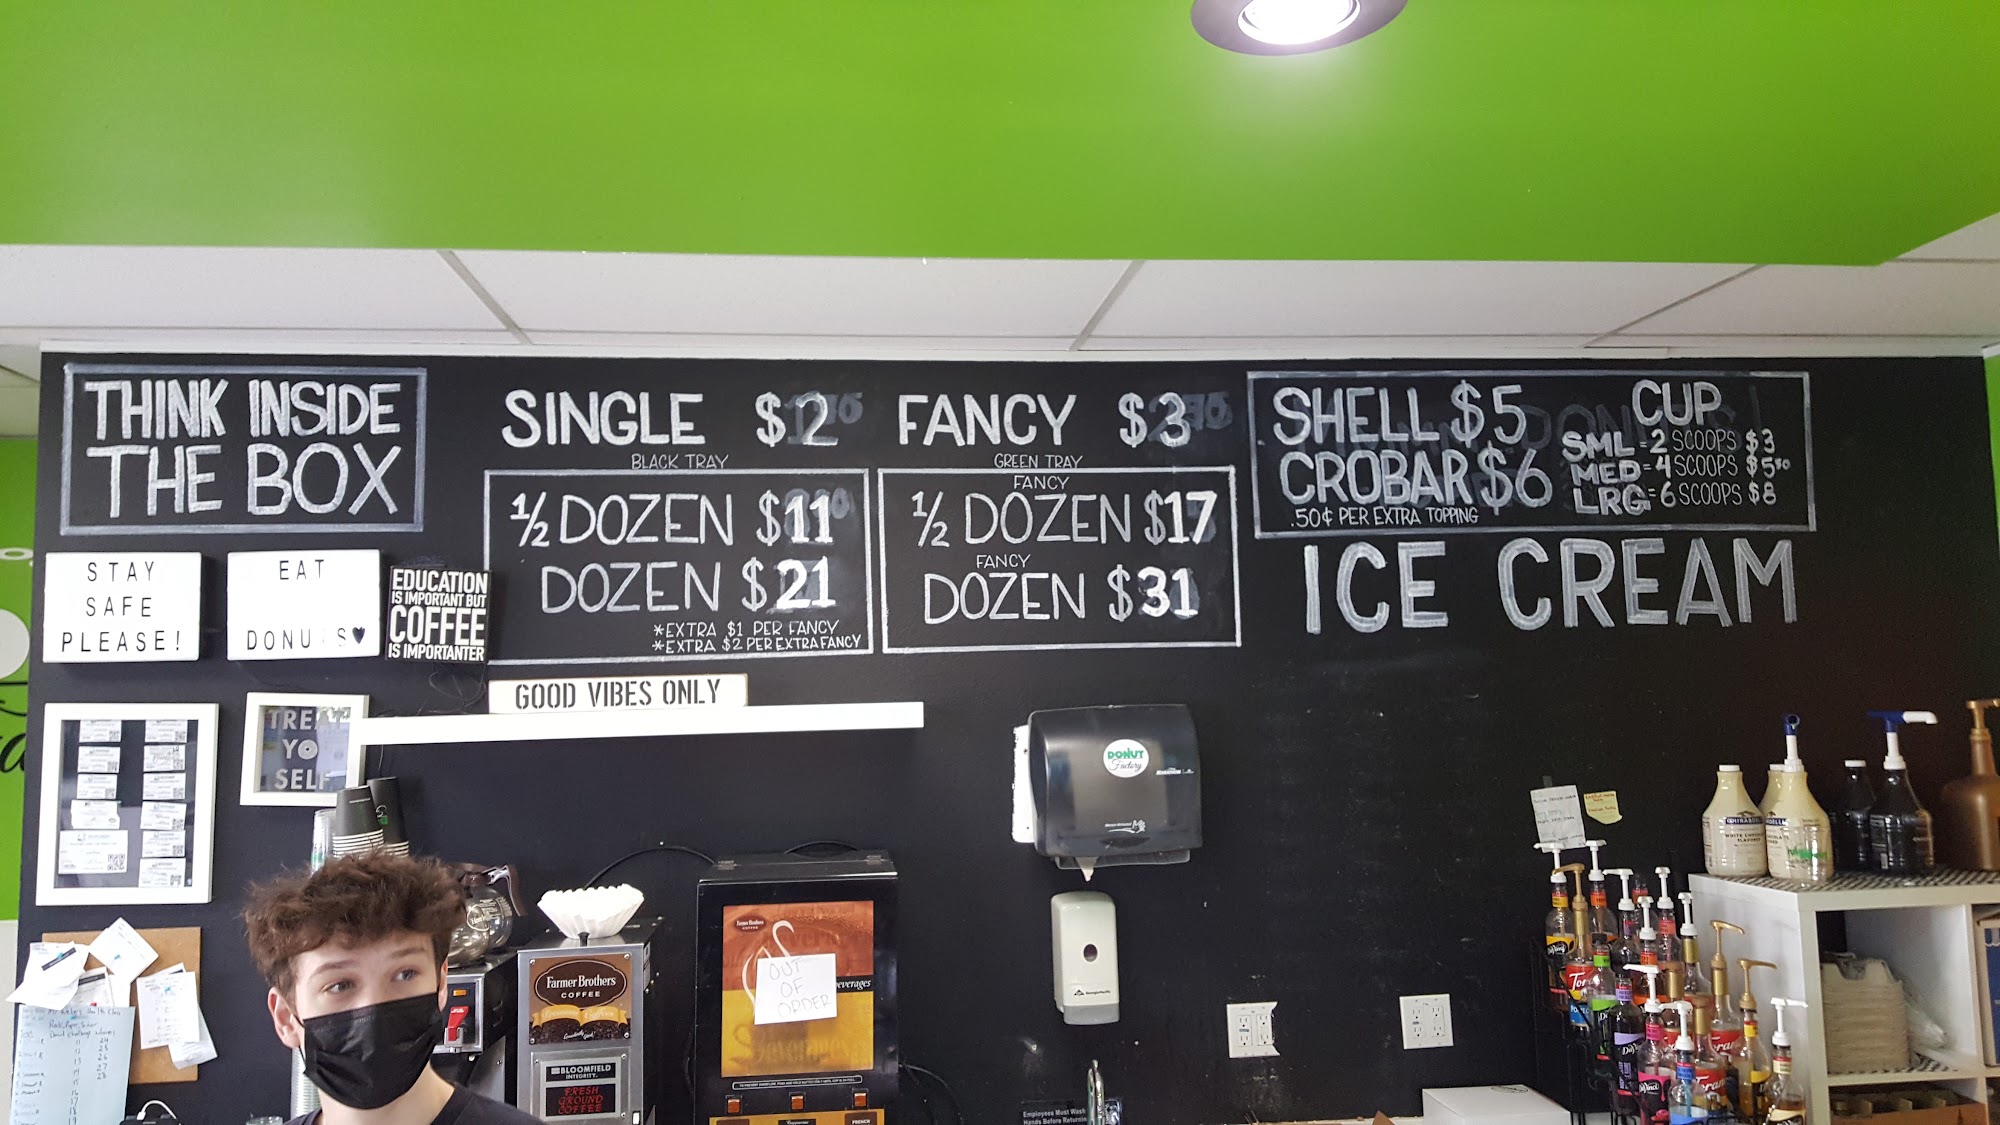 THINK INSIDE
THE BOX
SINGLE $2
BLACK TRAY
1/2 DOZEN $11
DOZEN $21
*EXTRA $1 PER FANCY
*EXTRA $2 PER EXTRA FANCY
FANCY $3
GREEN TRAY
FANCY
1/2 DOZEN $17
FANCY
DOZEN $31
SHELL $5
CROBAR $6
.50¢ PER EXTRA TOPPING
CUP
SML = 2 SCOOPS $3
MED = 4 SCOOPS $5.50
LRG = 6 SCOOPS $8
ICE CREAM
STAY
SAFE
PLEASE!
EAT
DONUTS♥
EDUCATION
IS IMPORTANT BUT
COFFEE
IS IMPORTANTER
GOOD VIBES ONLY
TREAT
YO
SELF
DONUT
Factory
Farmer Brothers
COFFEE
BLOOMFIELD
INTEGRITY.
FRESH
GROUND
COFFEE
Farmer Brothers
COFFEE
OUT
OF
ORDER
Beverages
FRENCH
Employees Must Wash
Hands Before Returning
GHIRARDELLI
WHITE CHOCOLATE
FLAVORED
Torani
DaVinci